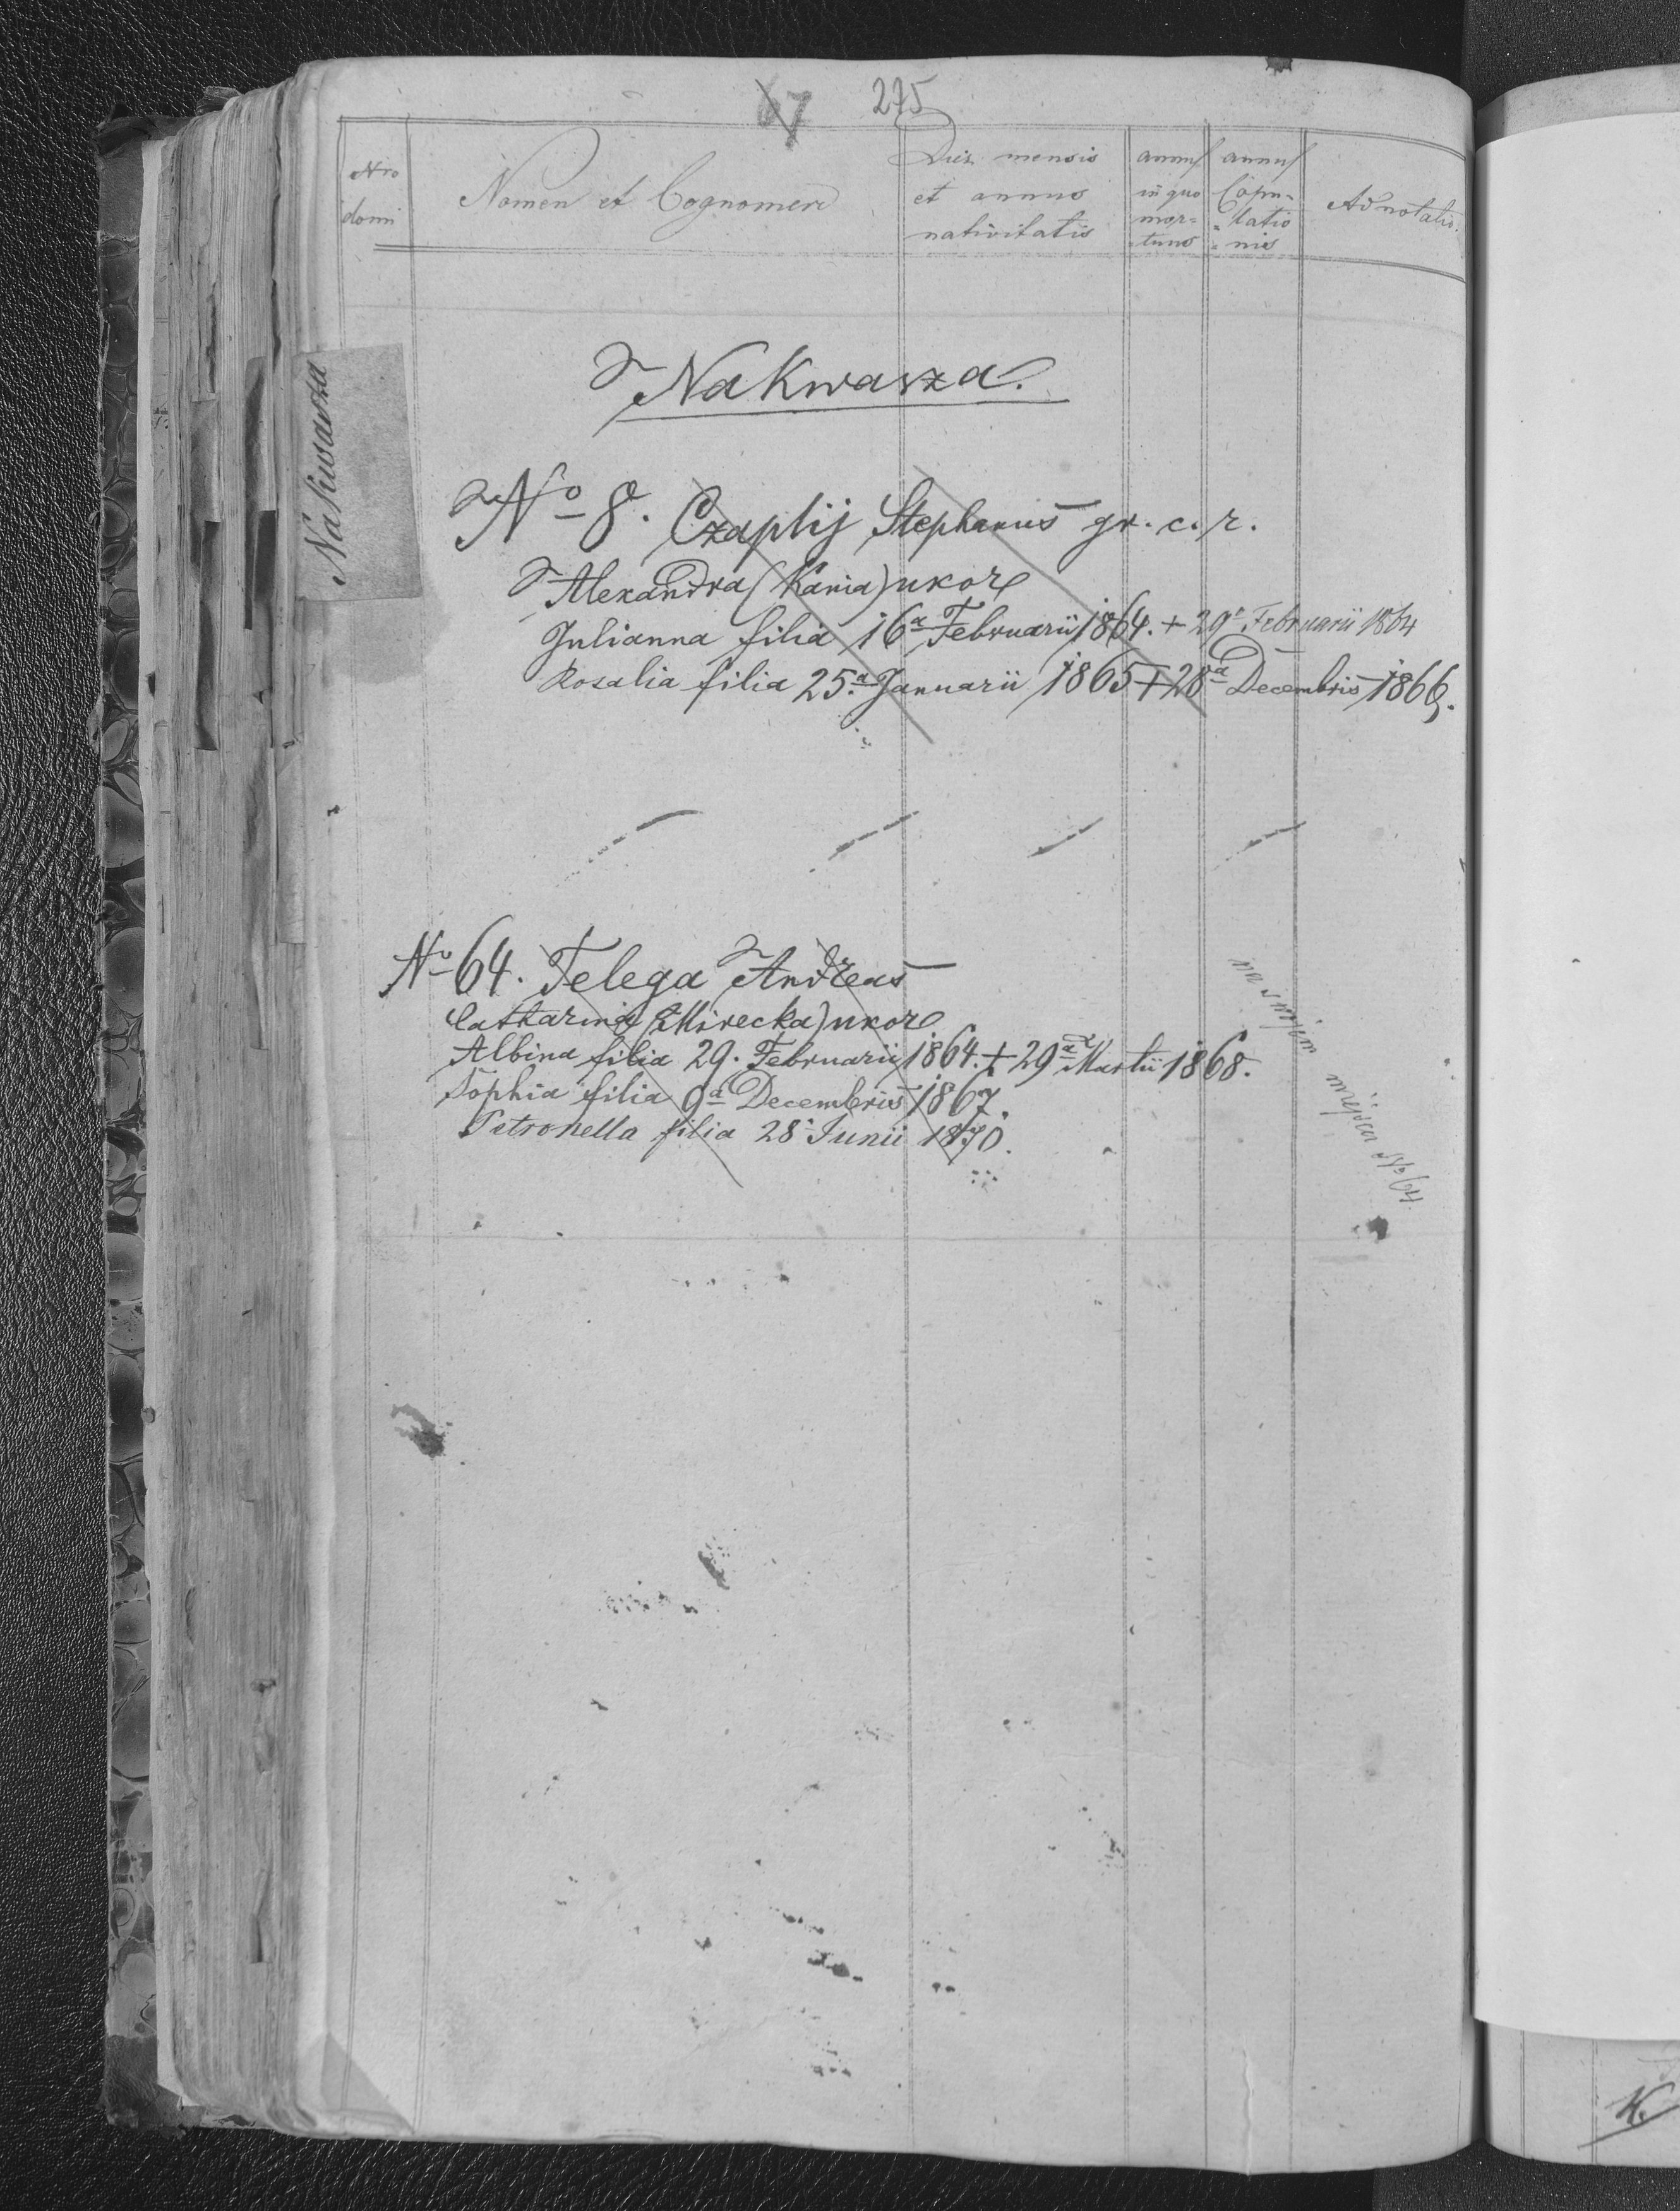 67 275
Nro domi
Nomen et Cognomen
Dies mensis et annus nativitatis
annus in quo mor= =tuus
annus Copu= =latio =nis
Adnotatio.
Nakwasza
Nakwasza.
No 8. Czaplij Stephanus gr. c. r.
Alexandra (Kania) uxor
Julianna filia 16a Februarii 1864. + 29a Februarii 1864
Rosalia filia 25.a Januarii 1865 + 28a Decembris 1866.
No 64. Telega Andreas
Catharina (Mirecka) uxor
Albina filia 29. Februarii 1864. + 29a Martii 1868.
Sophia filia 9a Decembris 1867.
Petronella filia 28 Junii 1870.
na swojem miejscu No 64